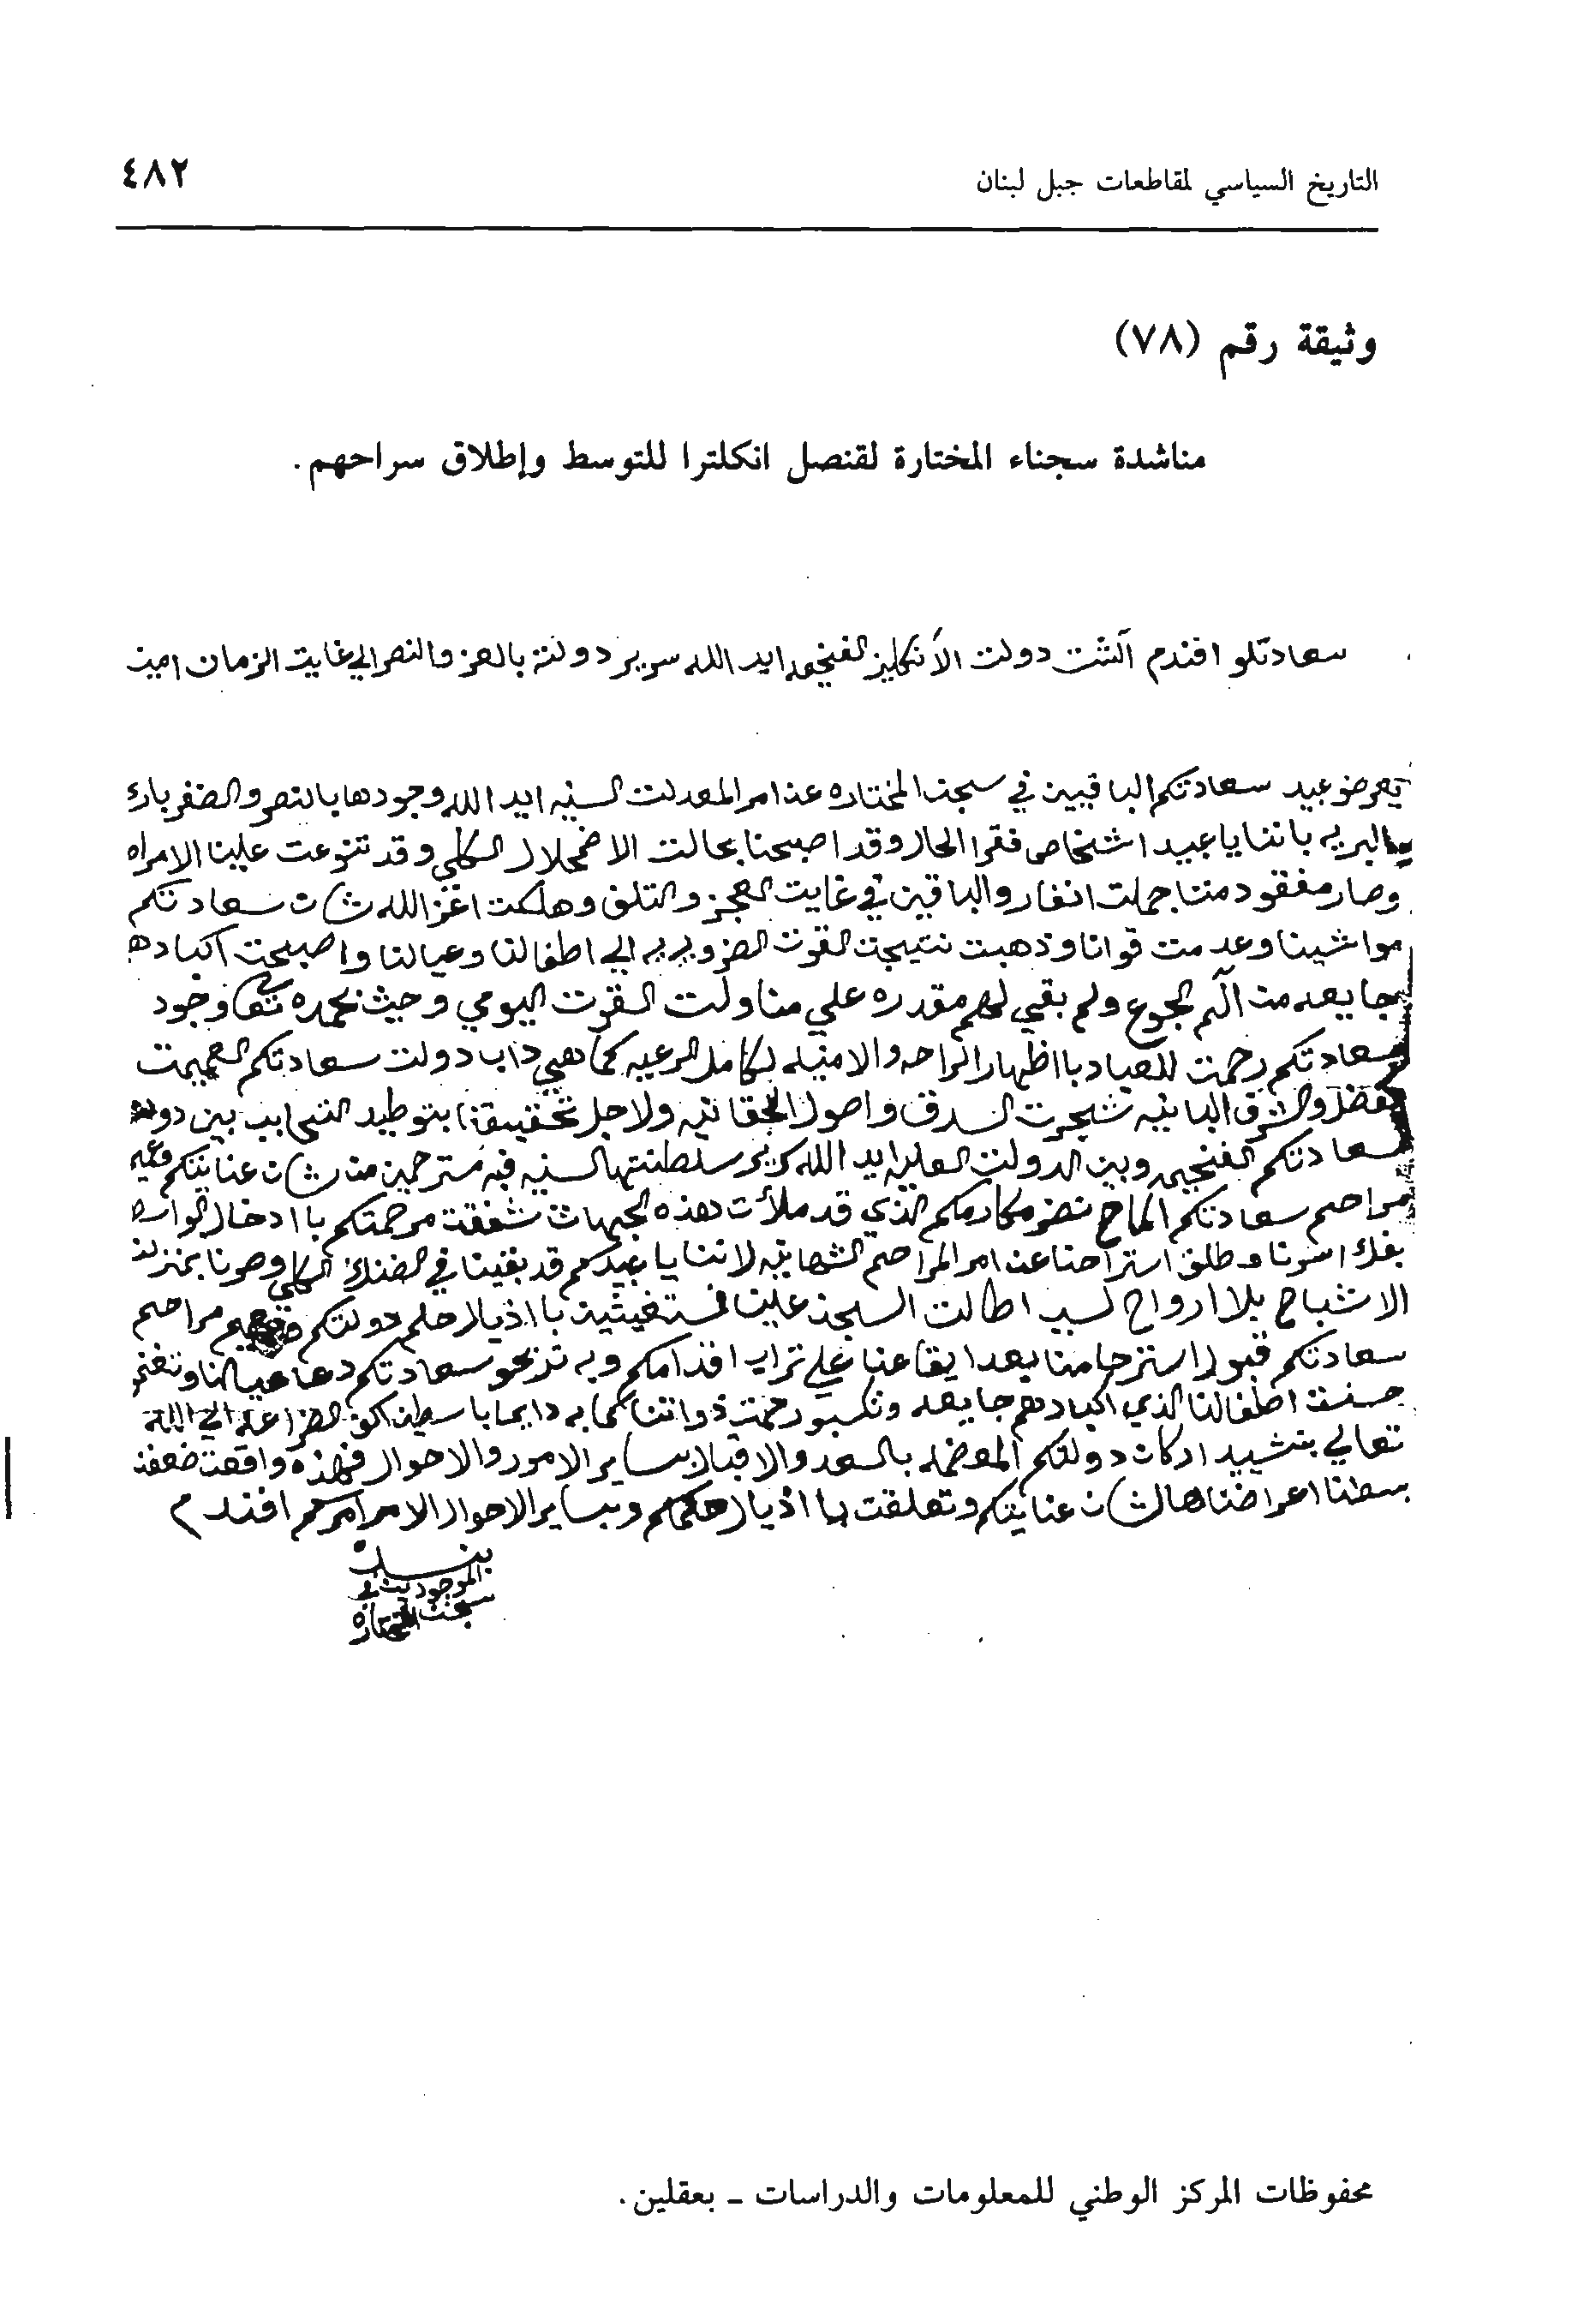 التاريخ السياسي لمقاطعات جبل لبنان
٤٨٢
وثيقة رقم (٧٨)
مناشدة سجناء المختارة لقنصل انكلترا للتوسط وإطلاق سراحهم.
سعادتلو افندم دولت الأنكليز الفخيمه ايد الله سرير دولته بالعز والنصر الي غايت الزمان امين
يعرضو عبيد سعادتكم الباقيين في سجن المختاره عن امر المعدلت السنيه ايد الله وجودها بالنصر والضفر بارء
البريه باننا يا عبيد اشخاص فقرا الحال وقد اصبحنا بحالت الاضمحلال الكلي وقد تنوعت علينا الامراه
وصار مفقود منا جملت انفار والباقين في غايت العجز والتلف وهلكت اعز الله شان سعادتكم
مواشينا وعدمت قوانا وذهبت نتيجت القوت الضروريه الي اطفالنا وعيالنا واصبحت اكباده
جايعه من الم الجوع ولم بقي لهم مقدره علي مناولت القوت اليومي وحيث نحمده تعا وجود
سعادتكم رحمت للعباد بااظهار الراحه والامنيه لكامل الرعيه كما هي داب دولت سعادتكم العميمت
الفضل والشرف البانيه شجرت السدق واصول الحقانيه ولاجل تحقيقنا بتوطيد التحابب بين دولة
سعادتكم الفخيمه وبين الدولت العليه ايد الله سرير سلطنتها السنيه فبه مسترحمين من شان عنايتكم
مراحم سعادتكم نضر مكارمكم الذي قد ملأت هذه الجهات شفقت مرحمتكم باادخال الواسه
بفك اسرنا وطلق استراحنا عن امر المراحم الشهابيه لاننا يا عبيدكم قد بقينا في الضنك الكلي وصرنا بمنزلت
الاشباح بلا ارواح لسبب اطالت السجن علينا فمستغيثين بااذيال حلم دولتكم مراحم
سعادتكم قبول استرحامنا بعد ايقاعنا علي تراب اقدامكم وبه تربحو سعادتكم دعا عيالنا وتغنمو
اطفالنا الذي اكبادهم جايعه وتكسبو رحمت ذواتنا كما به دايما باسطين اكف الضراعه الي الله
تعالي بتشييد اركان دولتكم المعضمه بالسعد والاقبال بساير الامور والاحوال فهذه واقعت ضعفنا
بسطنا اعراضناها لشان عنايتكم وتعلقت بااذيال حلمكم وبساير الاحوال الامر امركم افندم
بنده
الموجودين في
سجن المختاره
محفوظات المركز الوطني للمعلومات والدراسات ـ بعقلين.